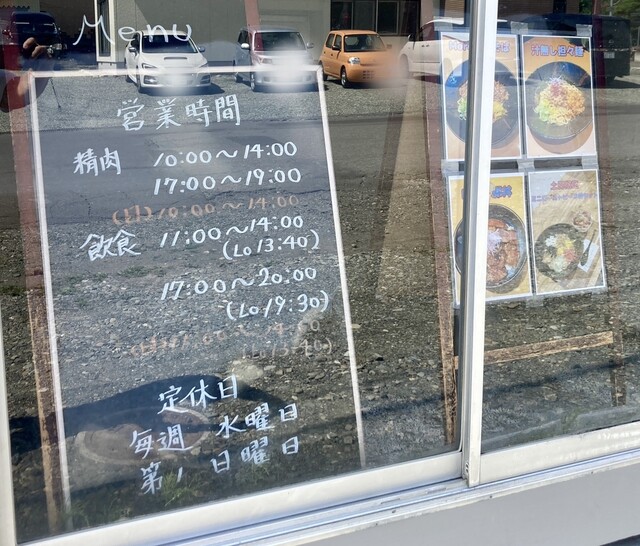 Menu
営業時間
精肉 10:00〜14:00
17:00〜19:00
(日)10:00〜14:00
飲食 11:00〜14:00
(Lo 13:40)
17:00〜20:00
(Lo 19:30)
(日)11:00〜14:00
(Lo 13:40)
定休日
毎週 水曜日
第1 日曜日
冷無し担々麺